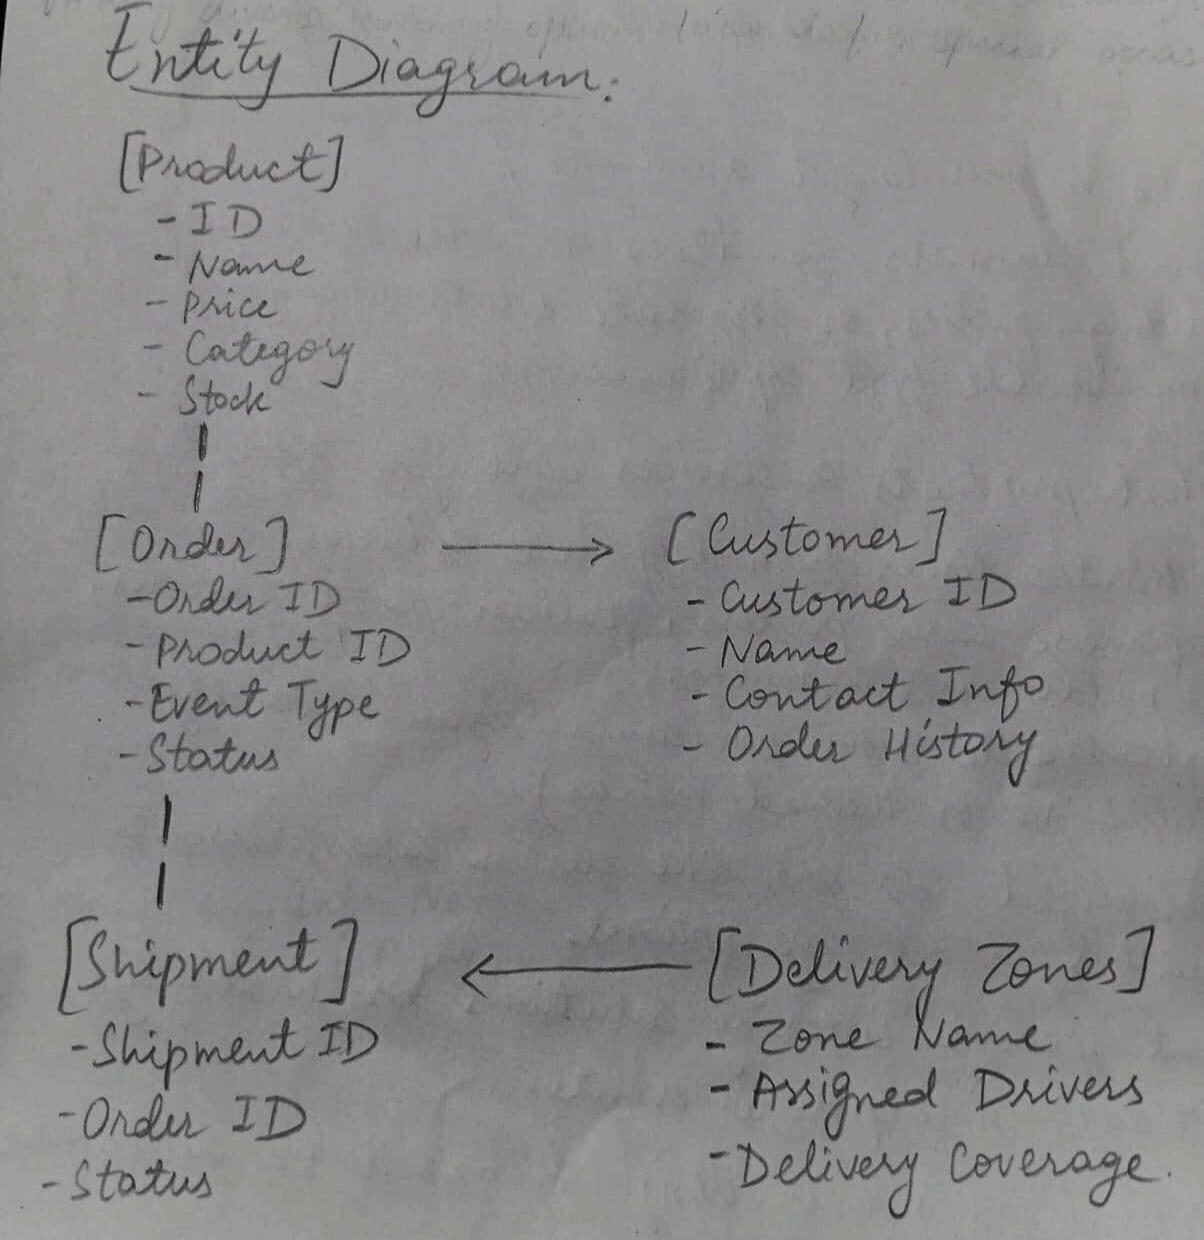 Entity Diagram:
[Product]
- ID
- Name
- Price
- Category
- Stock
[Order]
- Order ID
- Product ID
- Event Type
- Status
[Customer]
- Customer ID
- Name
- Contact Info
- Order History
[Shipment]
- Shipment ID
- Order ID
- Status
[Delivery Zones]
- Zone Name
- Assigned Drivers
- Delivery Coverage.